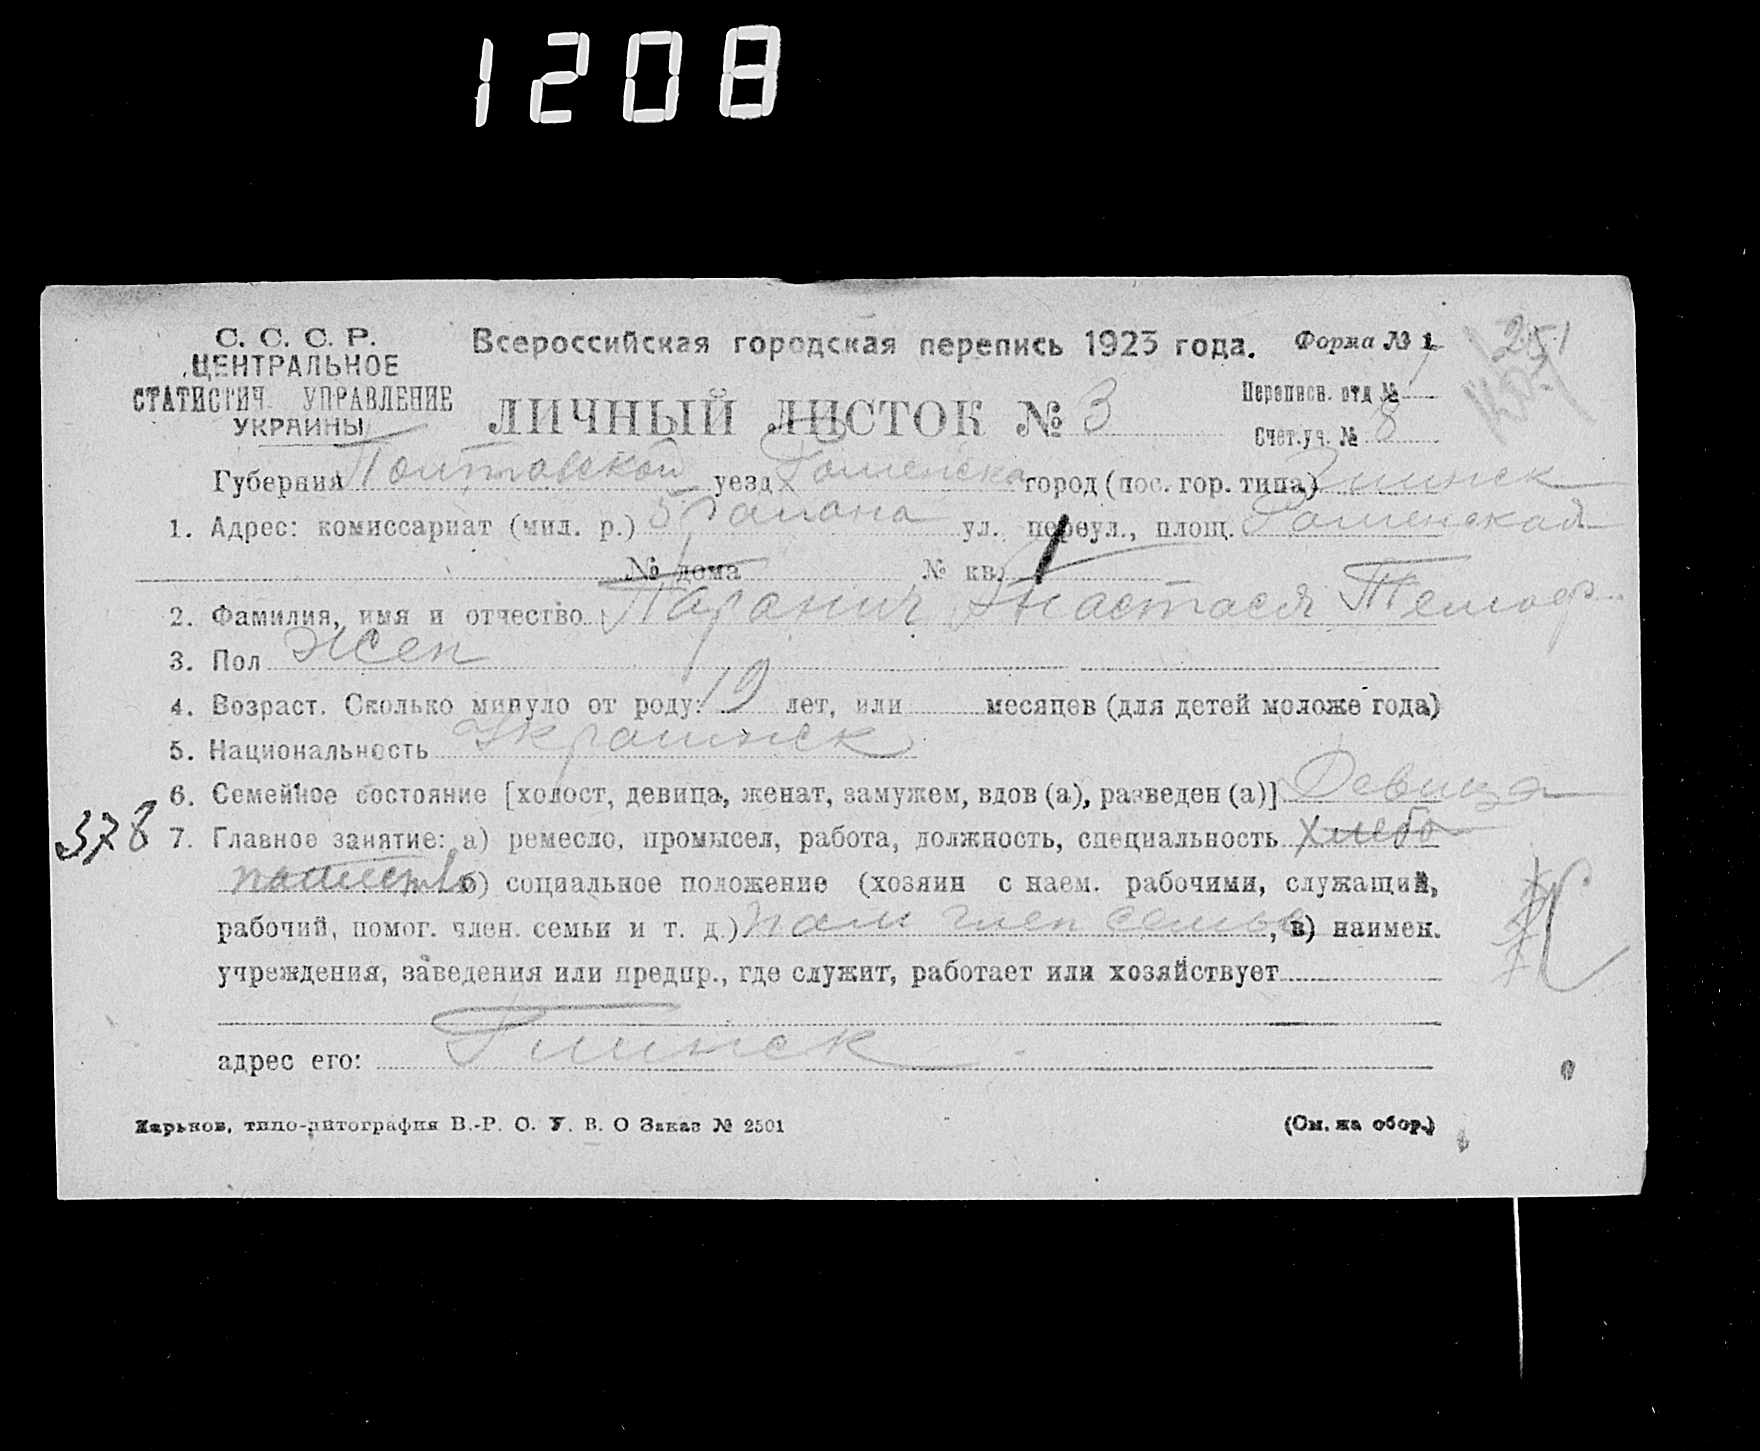 1208
С. С. С. Р.
ЦЕНТРАЛЬНОЕ
СТАТИСТИЧ. УПРАВЛЕНИЕ
УКРАИНЫ
Всероссийская городская перепись 1923 года.
Форма № 1
251
ЛИЧНЫЙ ЛИСТОК № 3
Переписн. отд №
Счет.уч. № 8
Губерния Полтавской уезд Роменско город (пос. гор. типа) Глинск
1. Адрес: комиссариат (мил. р.) 5 района ул. переул., площ. Роменская
№ дома № кв.
2. Фамилия, имя и отчество Паранич Анастася Тимоф
3. Пол Жен
4. Возраст. Сколько минуло от роду: 19 лет, или месяцев (для детей моложе года)
5. Национальность Украинск
6. Семейное состояние [холост, девица, женат, замужем, вдов (а), разведен (а)] Девица
378
7. Главное занятие: а) ремесло, промысел, работа, должность, специальность Хлебо
пашество б) социальное положение (хозяин с наем. рабочими, служащий,
рабочий, помог. член. семьи и т. д.) пом член семьи, в) наимен.
учреждения, заведения или предпр., где служит, работает или хозяйствует
адрес его: Глинск
Харьков, типо-литография В.-Р. О. У. В. О Заказ № 2501
(См. на обор.)